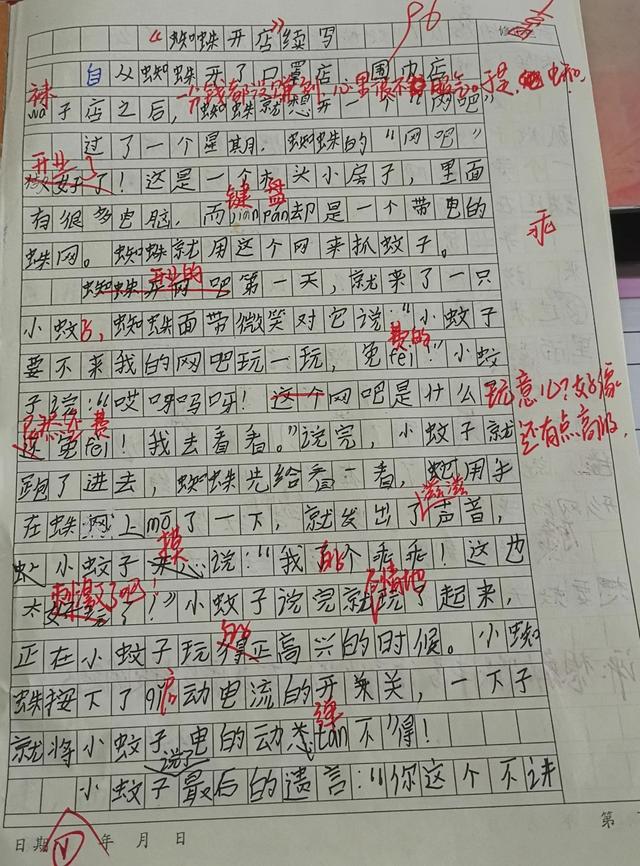 96
《蜘蛛开店》续写
自从蜘蛛开了口罩店，围巾店
袜
wà子店之后，蜘蛛就想开一个“网吧”
一分钱都没赚到，心里很不服气。于是，蜘蛛
过了一个星期，蜘蛛的“网吧”
开业
了！这是一个木头小房子，里面
键盘
有很多电脑，而jiàn pán却是一个带电的
乖
蛛网。蜘蛛就用这个网来抓蚊子。
开业的
蜘蛛开网吧第一天，就来了一只
小蚊子，蜘蛛面带微笑对它说：“小蚊子
费的
要不来我的网吧玩一玩，免fèi！”小蚊
子说：“哎呀妈呀！这个网吧是什么
玩意儿？好像
还有点高级，
居然免费
还免fèi！我去看看。”说完，小蚊子就
跑了进去，蜘蛛先给看一看，它用手
滋滋
在蛛网上mō了一下，就发出了声音，
摸
小蚊子来说：“我的个乖乖！这也
刺激了吧
太好玩了！”小蚊子说完就玩了起来，
正在小蚊子玩得正高兴的时候。小蜘
启
蛛按下了qǐ动电流的开关，一下子
弹
就将小蚊子电的动态tán不得！
说了
小蚊子最后的遗言：“你这个不讲
日期 年 月 日
第